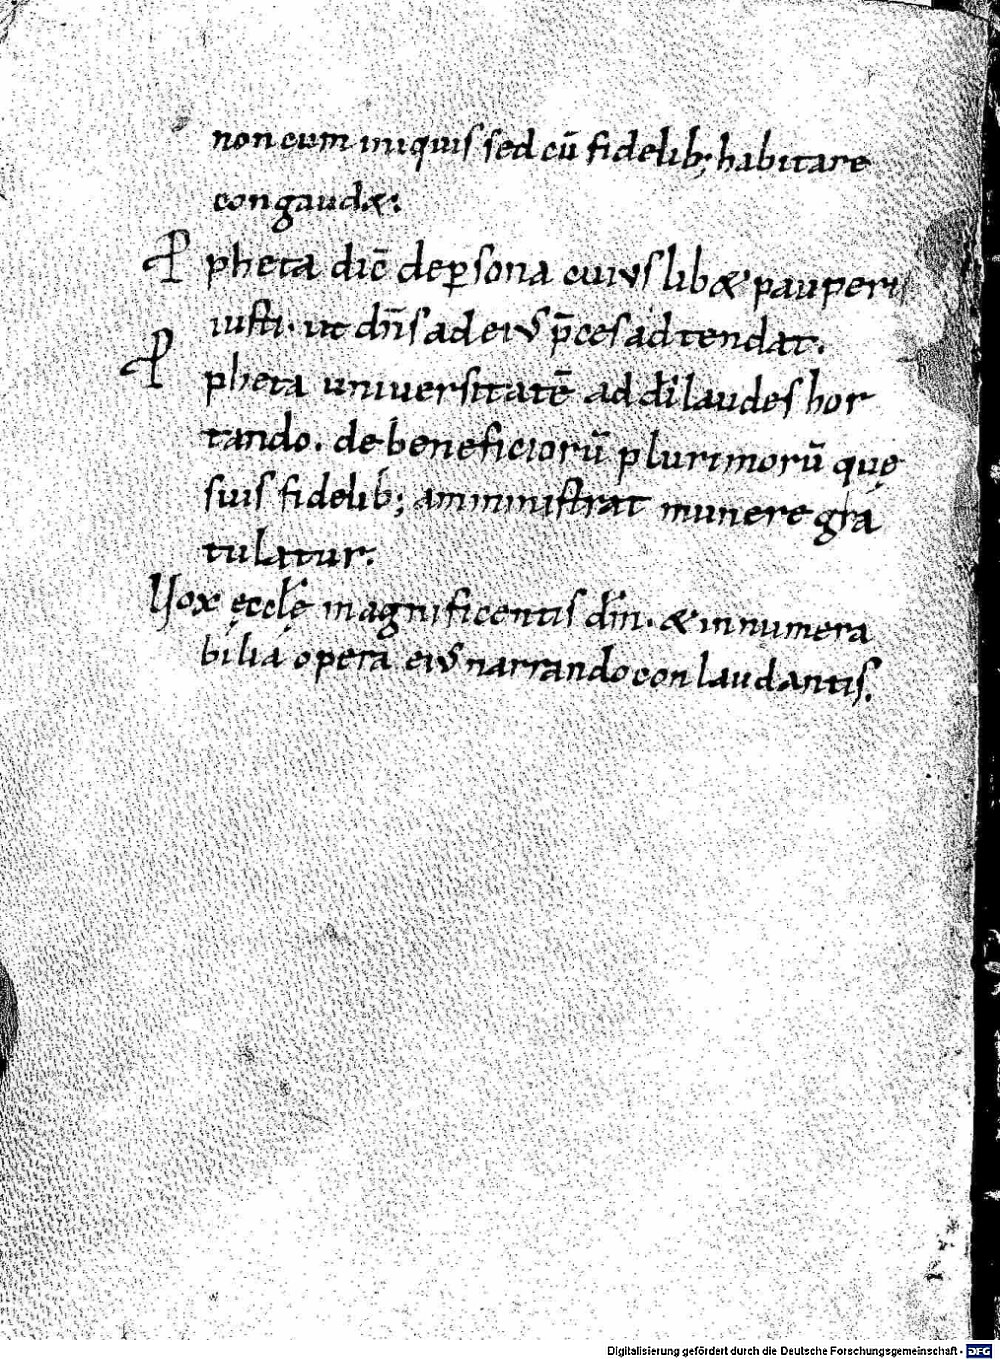 non cum iniquis sed cū fidelib; habitare
congaudæ:
P pheta dic̄ de p̱sona cuius lib& pauperis
iusti. ut dn̄s ad eius p̄ces adtendat.
P pheta universitatē ad dī laudes hor
tando. de beneficiorū plurimorū quę
suis fidelib; amministrat munere gra
tulatur.
Vox ęcclę magnificentis dn̄m. & innumera
bilia opera eius narrando conlaudantis.
Digitalisierung gefördert durch die Deutsche Forschungsgemeinschaft - DFG